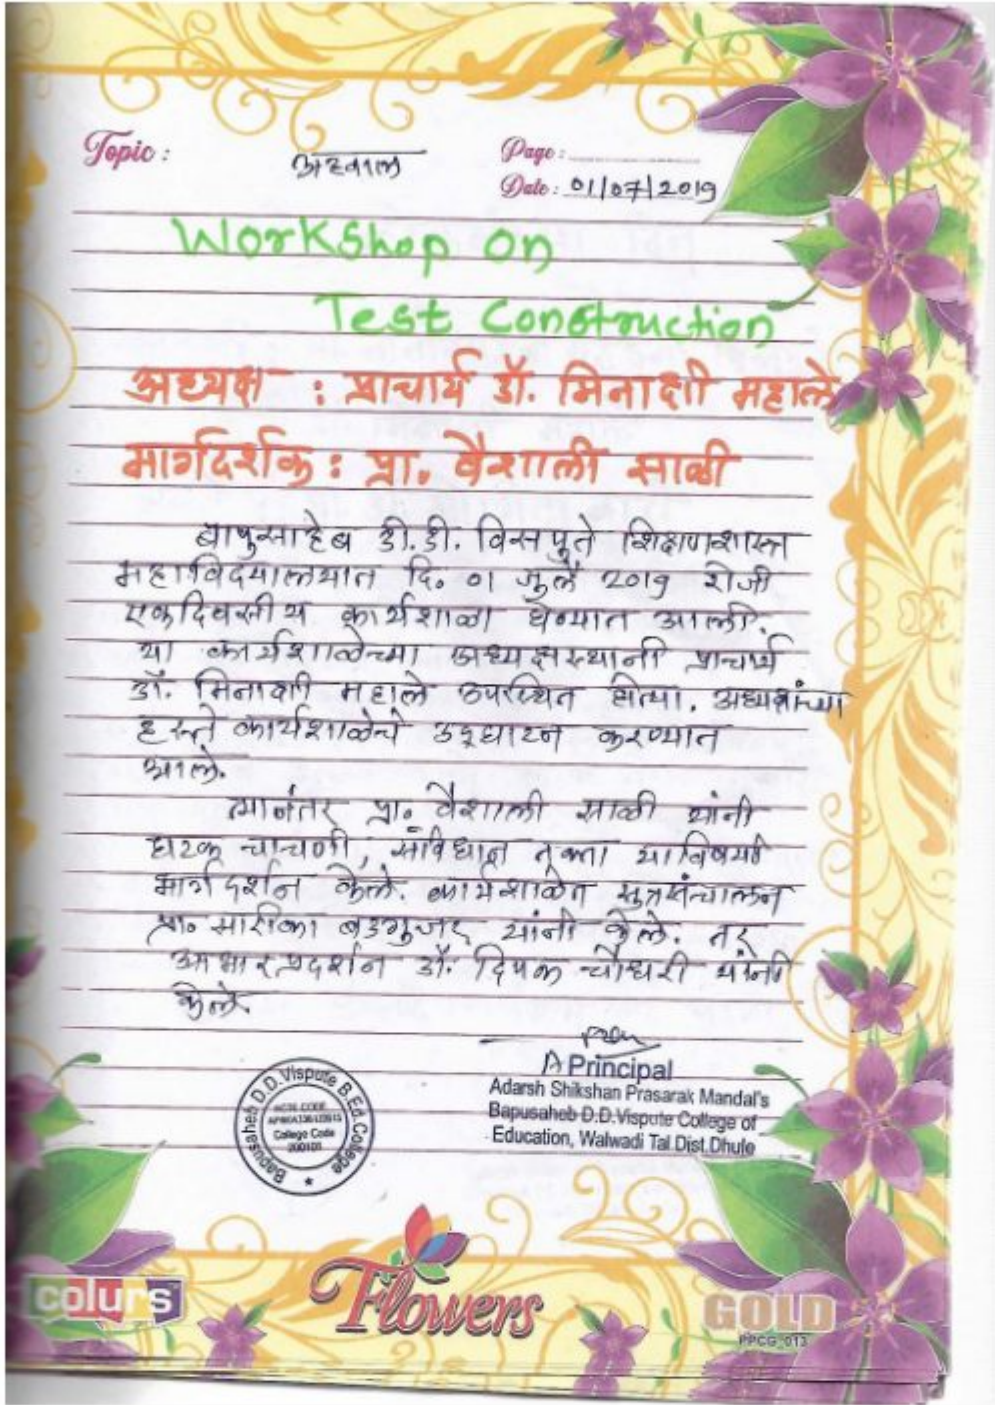 Topic :
अहवाल
Page :
Date : 01/07/2019
Workshop on
Test Construction
अध्यक्ष : प्राचार्य डॉ. मिनाक्षी महाले
मार्गदर्शक : प्रा. वैशाली साळी
बापुसाहेब डी.डी. विसपुते शिक्षणशास्त्र
महाविदयालयात दि. 01 जुलै 2019 रोजी
एकदिवसीय कार्यशाळा घेण्यात आली.
या कार्यशाळेच्या अध्यक्षस्थानी प्राचार्य
डॉ. मिनाक्षी महाले उपस्थित होत्या. अध्यक्षांच्या
हस्ते कार्यशाळेचे उद्घाटन करण्यात
आले.
त्यानंतर प्रा. वैशाली साळी यांनी
घटक चाचणी, संविधान तक्ता याविषयी
मार्गदर्शन केले. कार्यशाळेत सुत्रसंचालन
प्रा. सारीका बडगुजर यांनी केले. तर
आभारप्रदर्शन डॉ. दिपक चौधरी यांनी
केले.
Principal
Adarsh Shikshan Prasarak Mandal's
Bapusaheb D.D.Vispute College of
Education, Walwadi Tal.Dist.Dhule
Bapusaheb D.D.Vispute B.Ed.College
NCTE CODE
College Code
200101
colurs
Flowers
GOLD
PPCG_013